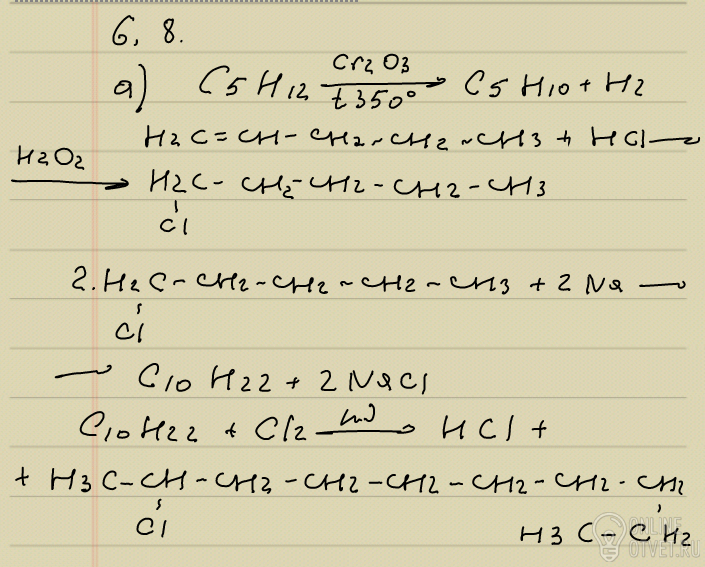 6, 8.
а) C5H12 Cr2O3 t350° → C5H10 + H2
H2C=CH-CH2-CH2-CH3 + HCl →
H2O2 → H2C-CH2-CH2-CH2-CH3
Cl
2. H2C-CH2-CH2-CH2-CH3 + 2Na →
Cl
→ C10H22 + 2NaCl
C10H22 + Cl2 hν → HCl +
+ H3C-CH-CH2-CH2-CH2-CH2-CH2-CH2
Cl H3C-CH2
ONLINE
OTVET.RU